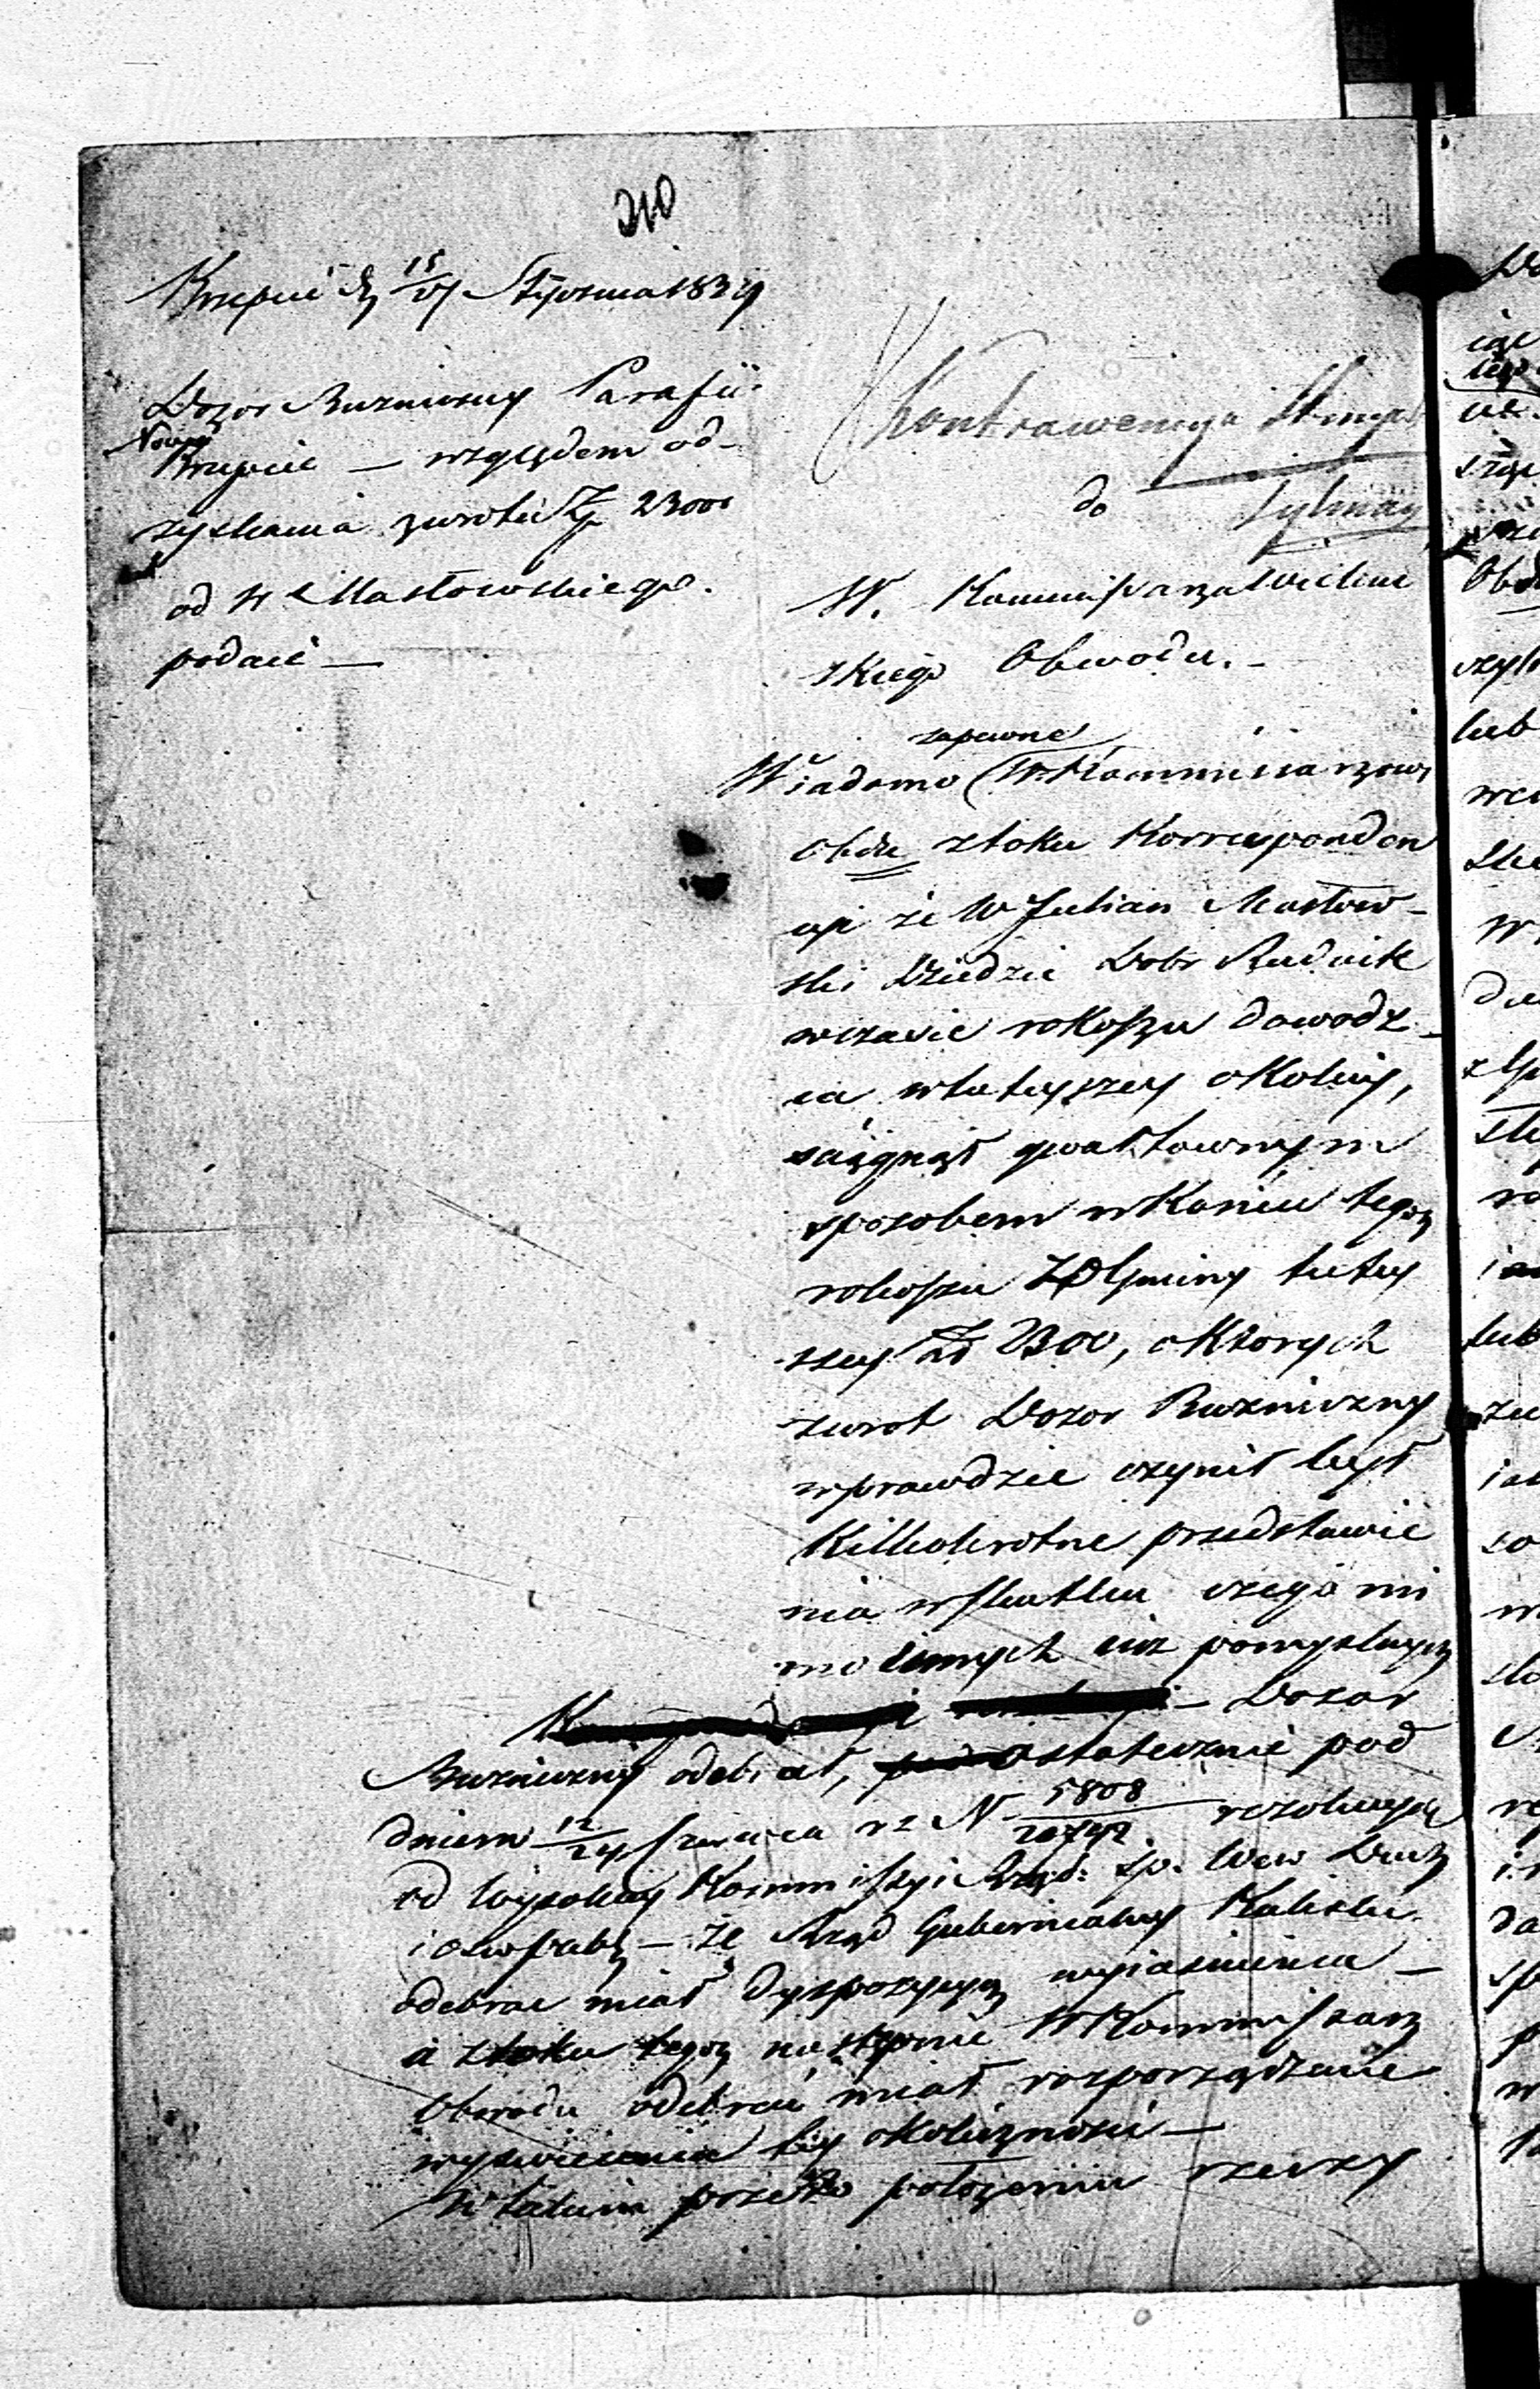 210
Krzepice d. 15/27 Stycznia 1834
Dozor Bużniczny Parafii
Nowy
Krzepice — względem od-
zyskania zwrotu Zł 2300
od W Masłowskiego.
podaie —
Kontrawencya Stempl
do
W. Kommissarza Wieluń
skiego Obwodu. —
zapewne
Wiadomo W. Kommissarzowi
Obdu z toku Korresponden
cyi że W Julian Masłow-
ski Dziedzic Dobr Rudnik
w czasie rokoszu dowodz-
ca w tuteyszey okolicy,
sciągnął gwałtownym
sposobem w Końcu tegoż
rokoszu z Gminy tutey
szey Zł 2300, o Ktorych
zwrot Dozor Bużniczny
wprawdzie czynił był
Kilkokrotne przedstawie
nia w skutku czego mi
mo innych niż pomyslnych
Dozor
Bużniczny odebrał, ostatecznie pod
dniem 12/24 Czerwca rz N 5808/20792 rezolucyą
od Wysokiey Kommissyi Rząd: Sp. Wew Duch
i Oswi — że Rząd Gubernialny Kaliski
odebrac miał dyspozycyą wyiasnienia —
a z toku tegoż nastepnie W Kommissarz
Obwodu odebrać miał rozporządzenie
wyswiecenia tey okoliczności —
W takim przeto położeniu rzeczy